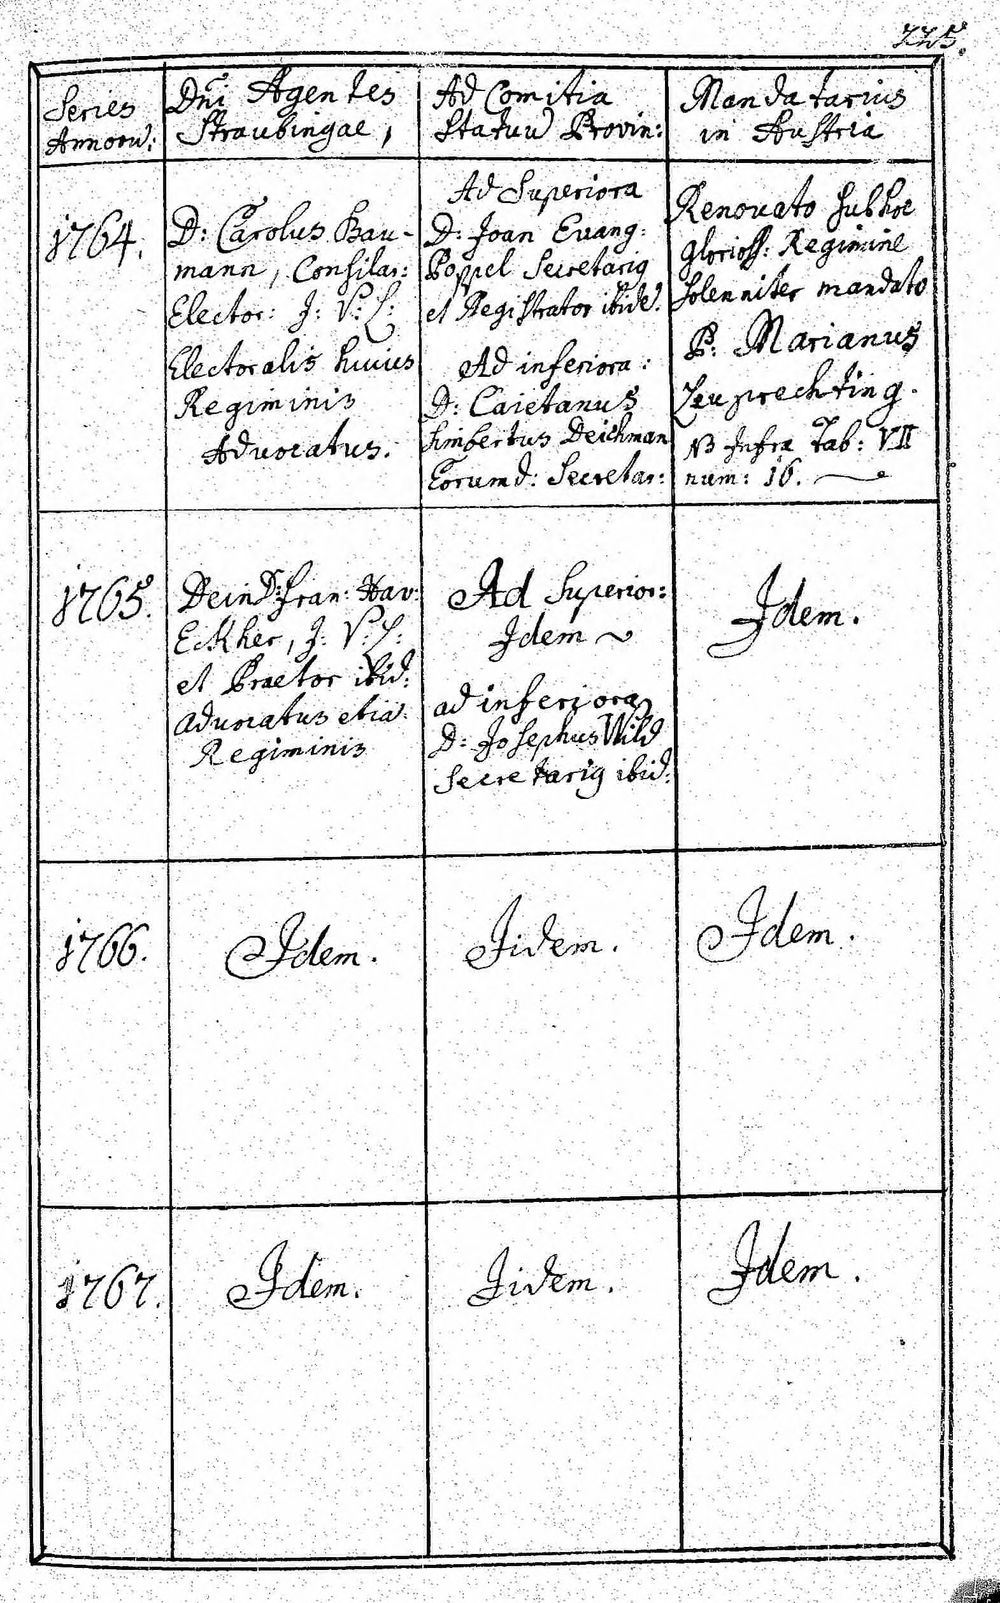 225.
Series
Annorū:
Dn̄i Agentes
Straubingae,
Ad Comitia
Statuū Provin:
Mandatarius
in Austria
1764.
D: Carolus Bau-
mann, Consilar:
Elector: J: V: L:
Electoralis huius
Regiminis
Advocatus.
Ad Superiora
D: Joan Evang:
Poppel Secretarig
et Registrator ibidē.
Ad inferiora:
D: Caietanus
Simbertus Deichman
Eorumd: Secretar:
Renovato sub hoc
glorioss: Regimine
solenniter mandato
P: Marianus
Leuprechting.
NB Infra Tab: VII
num: 16.
1765.
Dein D: Fran: Xav:
Eckher, J: V: L:
et Praetor ibid:
advocatus etiā
Regiminis
Ad Superior:
Idem
ad inferiora
D: Josephus Wild
Secretarig ibid:
Idem.
1766.
Idem.
Iidem.
Idem.
1767.
Idem.
Iidem.
Idem.